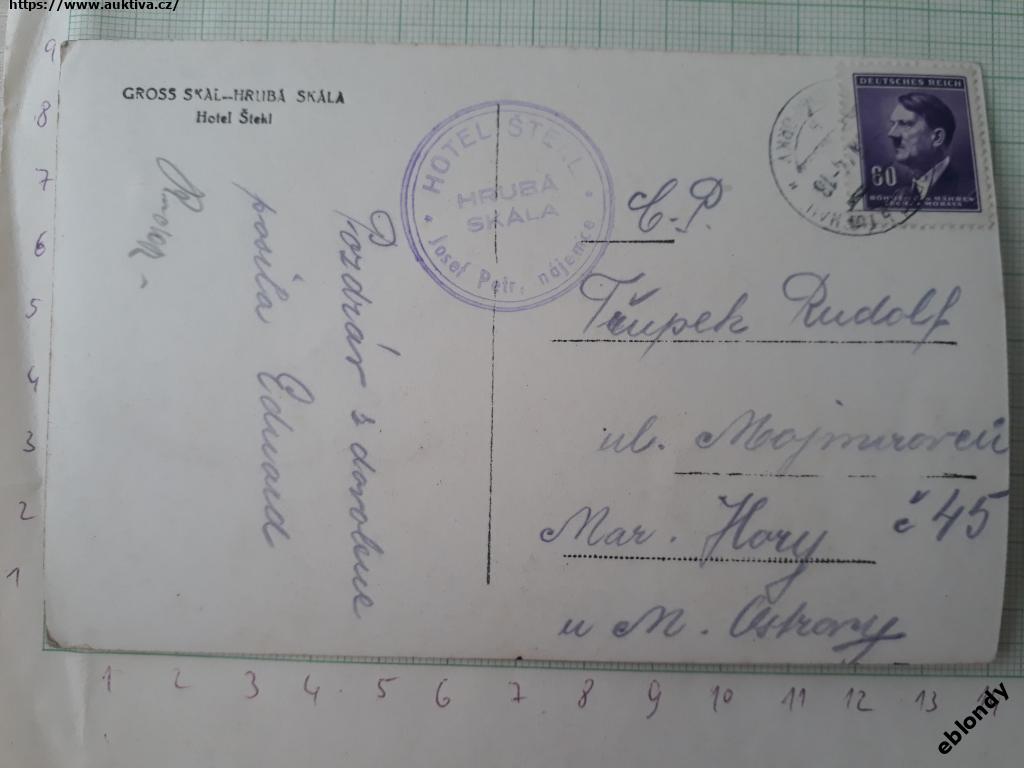 https://www.auktiva.cz/
GROSS SKAL—HRUBÁ SKÁLA
Hotel Štekl
HOTEL ŠTEKL
HRUBÁ
SKÁLA
Josef Petr, nájemce
DEUTSCHES REICH
60
BÖHMEN UND MÄHREN
ČECHY A MORAVA
Pozdrav s dovolene
posila Eduard
C.P.
Třupek Rudolf
ul. Mojmirovců
č 45
Mar. Hory
u M. Ostravy
9
8
7
6
5
4
3
2
1
1 2 3 4 5 6 7 8 9 10 11 12 13
eblondy